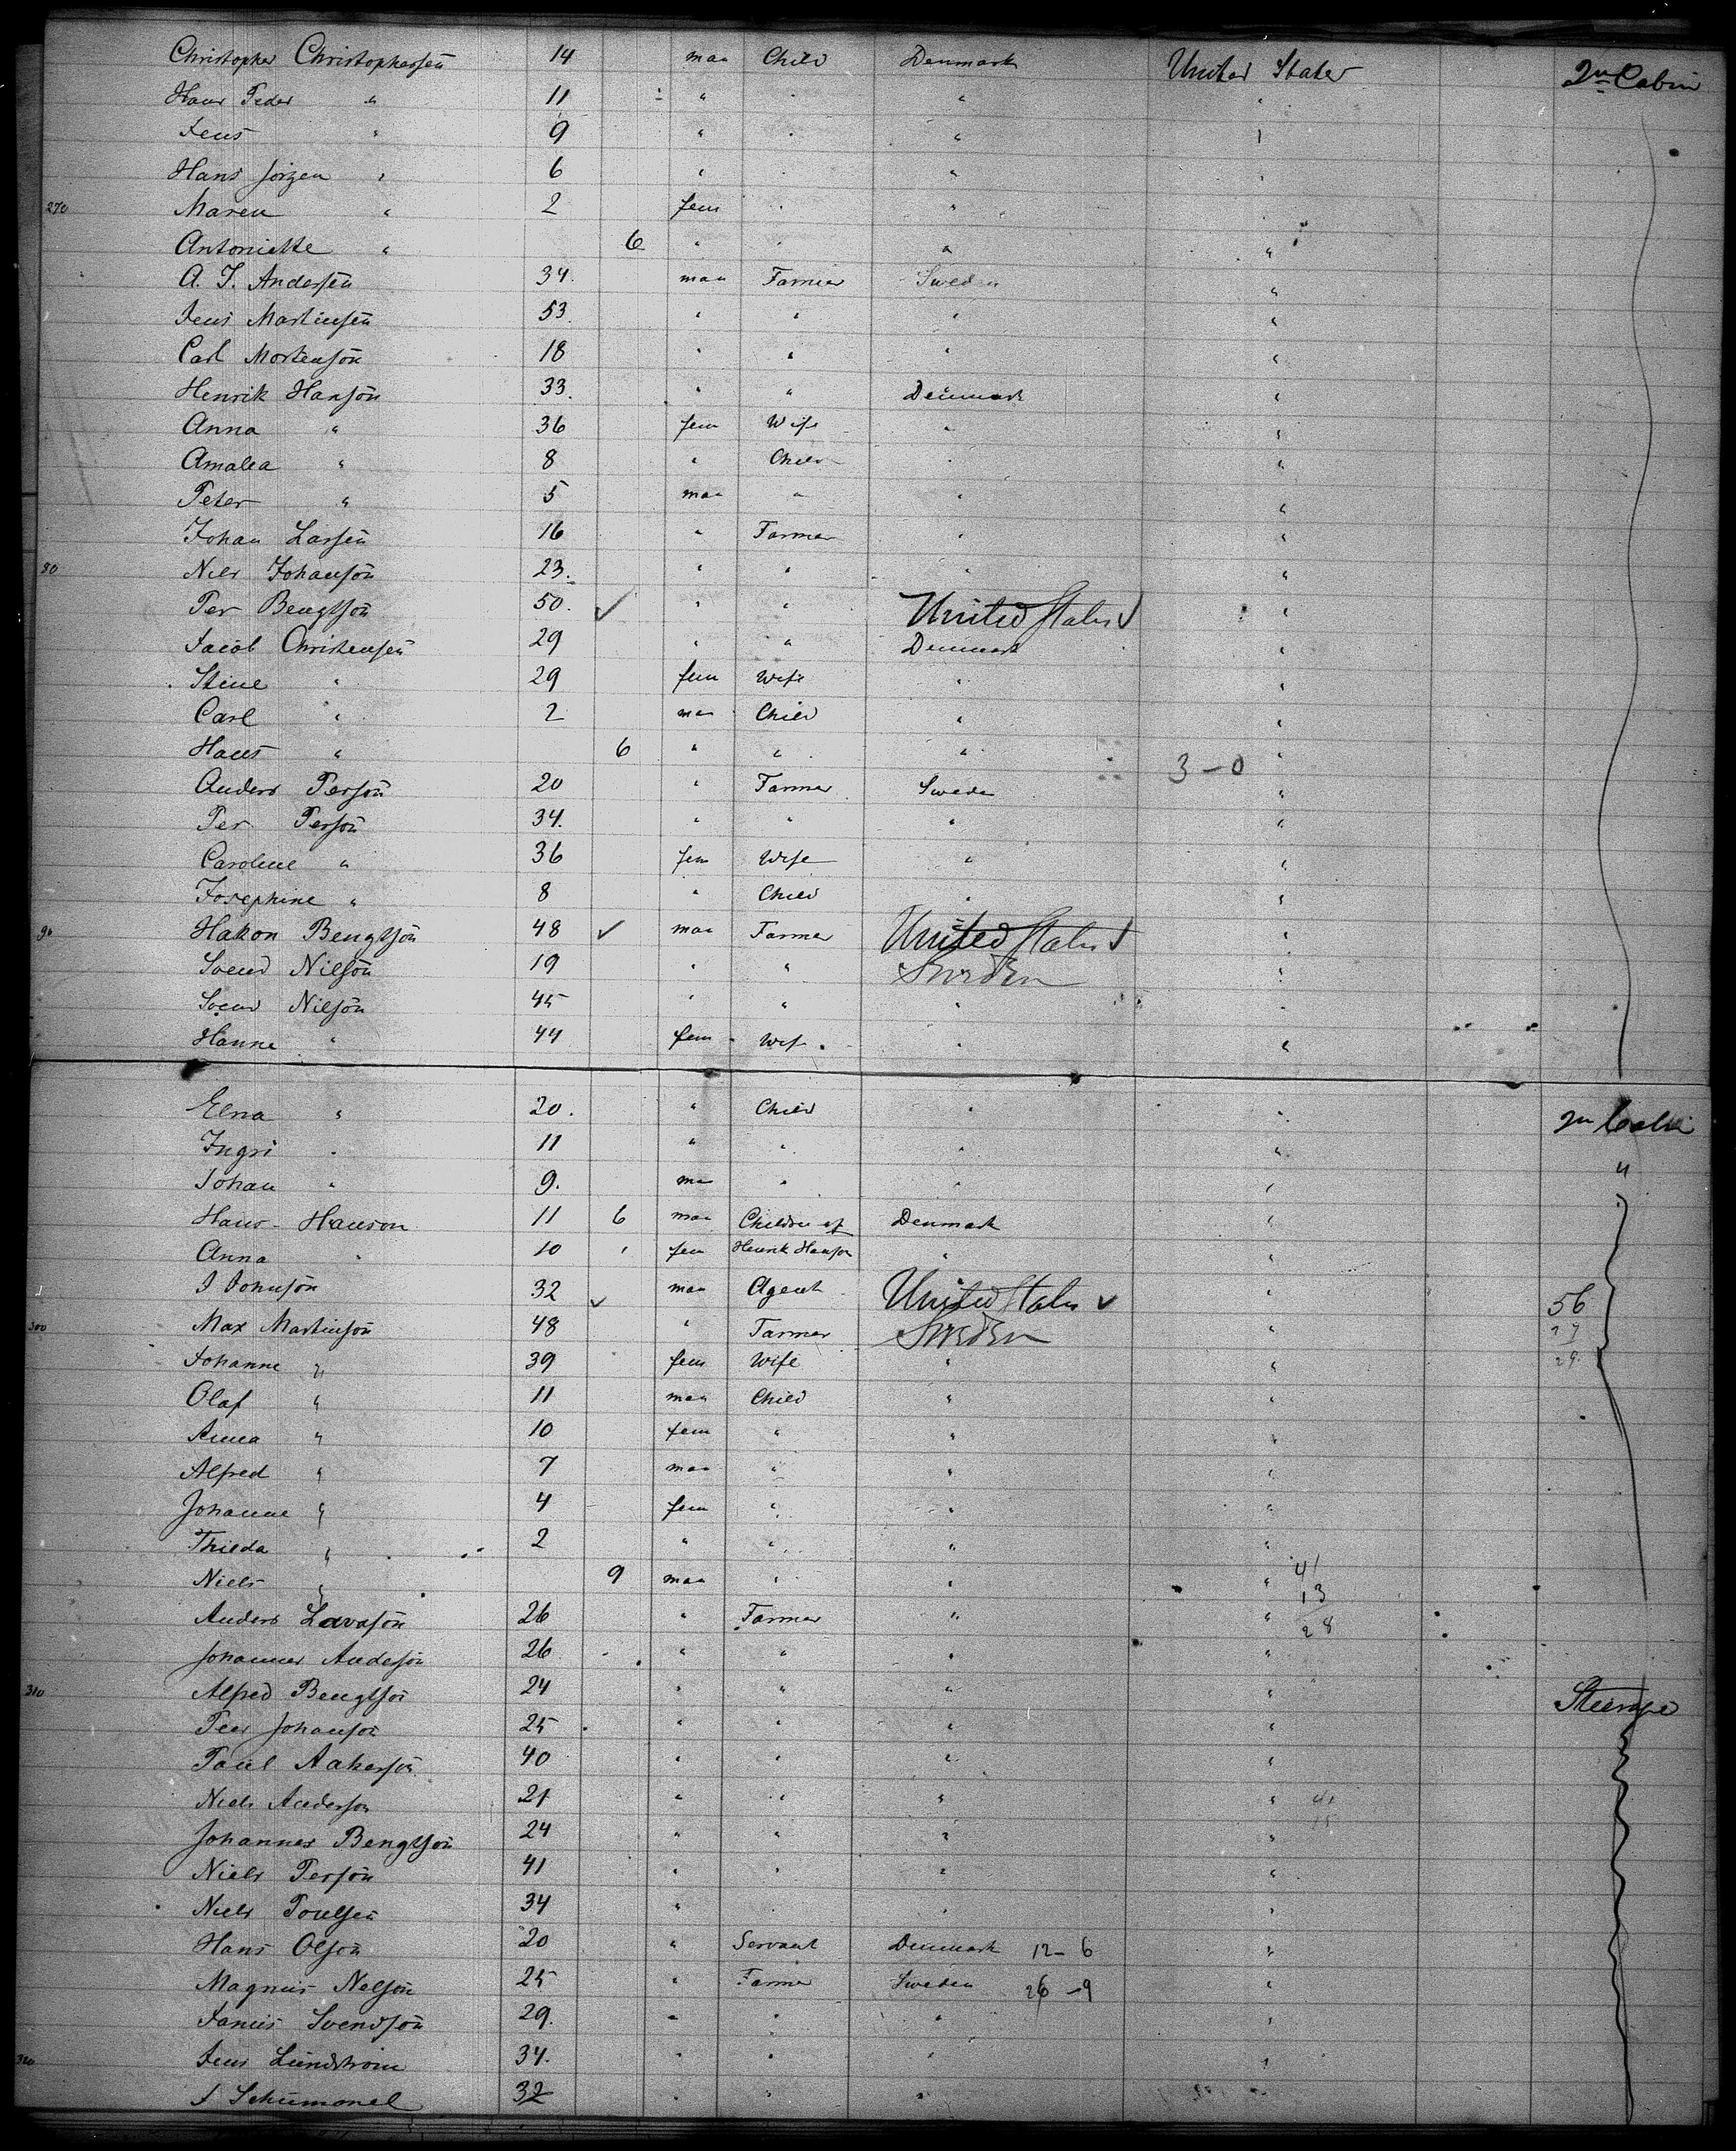 Christopher Christophersen 14 man Child Denmark United States 2n Cabin
Hans Peder " 11 " " " "
Jens " 9 " " " "
Hans Jörgen " 6 " " " "
270 Maren " 2 fem " " "
Antoniette " 6 " " " "
A. J. Andersen 34. man Farmer Sweden "
Jens Martinsen 53. " " " "
Carl Mortenson 18 " " " "
Henrik Hanson 33. " " Denmark "
Anna " 36 fem Wife " "
Amalea " 8 " Child " "
Peter " 5 man " " "
Johan Larsen 16 " Farmer " "
80 Nils Johanson 23. " " " "
Per Bengtson 50. ✓ " " United States ✓ "
Jacob Christensen 29 " " Denmark "
Stine " 29 fem Wife " "
Carl " 2 man Child " "
Hans " 6 " " " 3-0 "
Anders Person 20 " Farmer Sweden "
Per Person 34. " " " "
Caroline " 36 fem Wife " "
Josephine " 8 " Child " "
90 Hakon Bengtson 48 ✓ man Farmer United States ✓ "
Svend Nilson 19 " " Sweden "
Svend Nilson 45 " " " "
Hanne " 44 fem Wife " "
Elna " 20. " Child " " 2n Cabin
Ingri " 11 " " " " "
Johan " 9. man " " "
Hans Hanson 11 6 man Children of Denmark "
Anna " 10 " fem Henrik Hanson " "
J Johnson 32 ✓ man Agent United States ✓ " 56
300 Max Martinson 48 " Farmer Sweden " 27
Johanne " 39 fem Wife " " 29
Olaf " 11 man Child " "
Anna " 10 fem " " "
Alfred " 7 man " " "
Johanne " 4 fem " " "
Thilda " 2 " " " "
Niels " 9 man " " " 41
13
Anders Lavason 26 " Farmer " " 28
Johannes Anderson 26 " " " "
310 Alfred Bengtson 24 " " " " Steerage
Peer Johanson 25 " " " "
Paul Aakerson 40 " " " "
Niels Anderson 21 " " " " 41
15
Johannes Bengtson 24 " " " "
Niels Person 41 " " " "
Niels Poulsen 34 " " " "
Hans Olson 20 " Servant Denmark 12-6 "
Magnus Nelson 25 " Farmer Sweden 26-9 "
Janus Svendson 29. " " " "
320 Jens Lundstrom 34. " " " "
J Schumonel 32 " " "